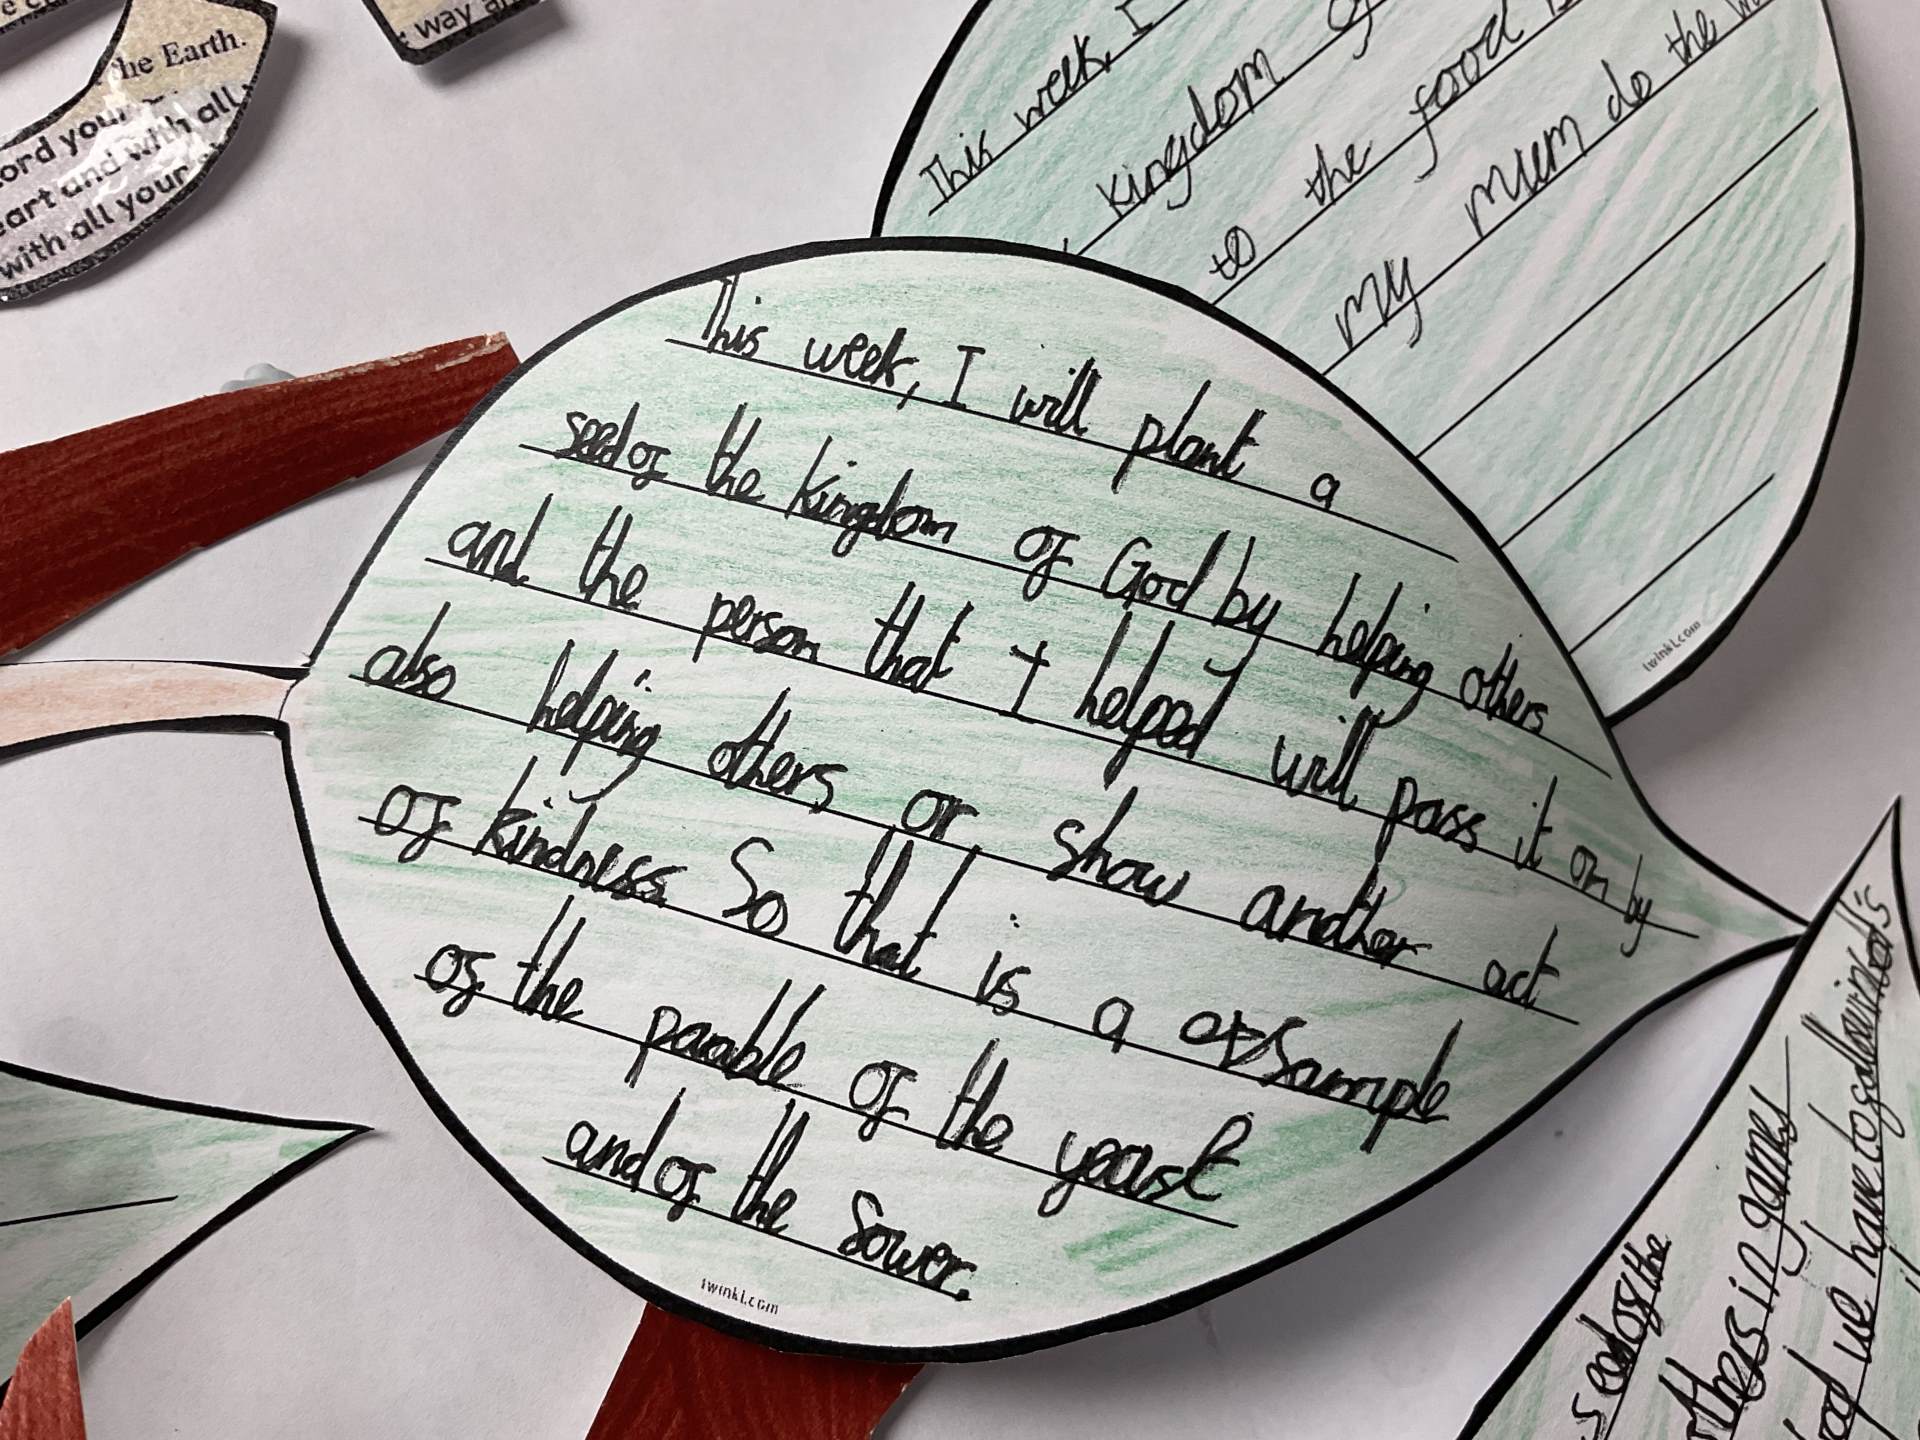 he Earth.
ord your
eart and with all
with all your
way
This week, I
kingdom of
to the food
my mum do the
twinkl.com
This week, I will plant a
seed of the kingdom of God by helping others
and the person that I helped will pass it on by
also helping others or show another act
of kindness. So that is a exsample
of the parable of the yeast
and of the Sower.
twinkl.com
seed of the
others in games
God we have to follow